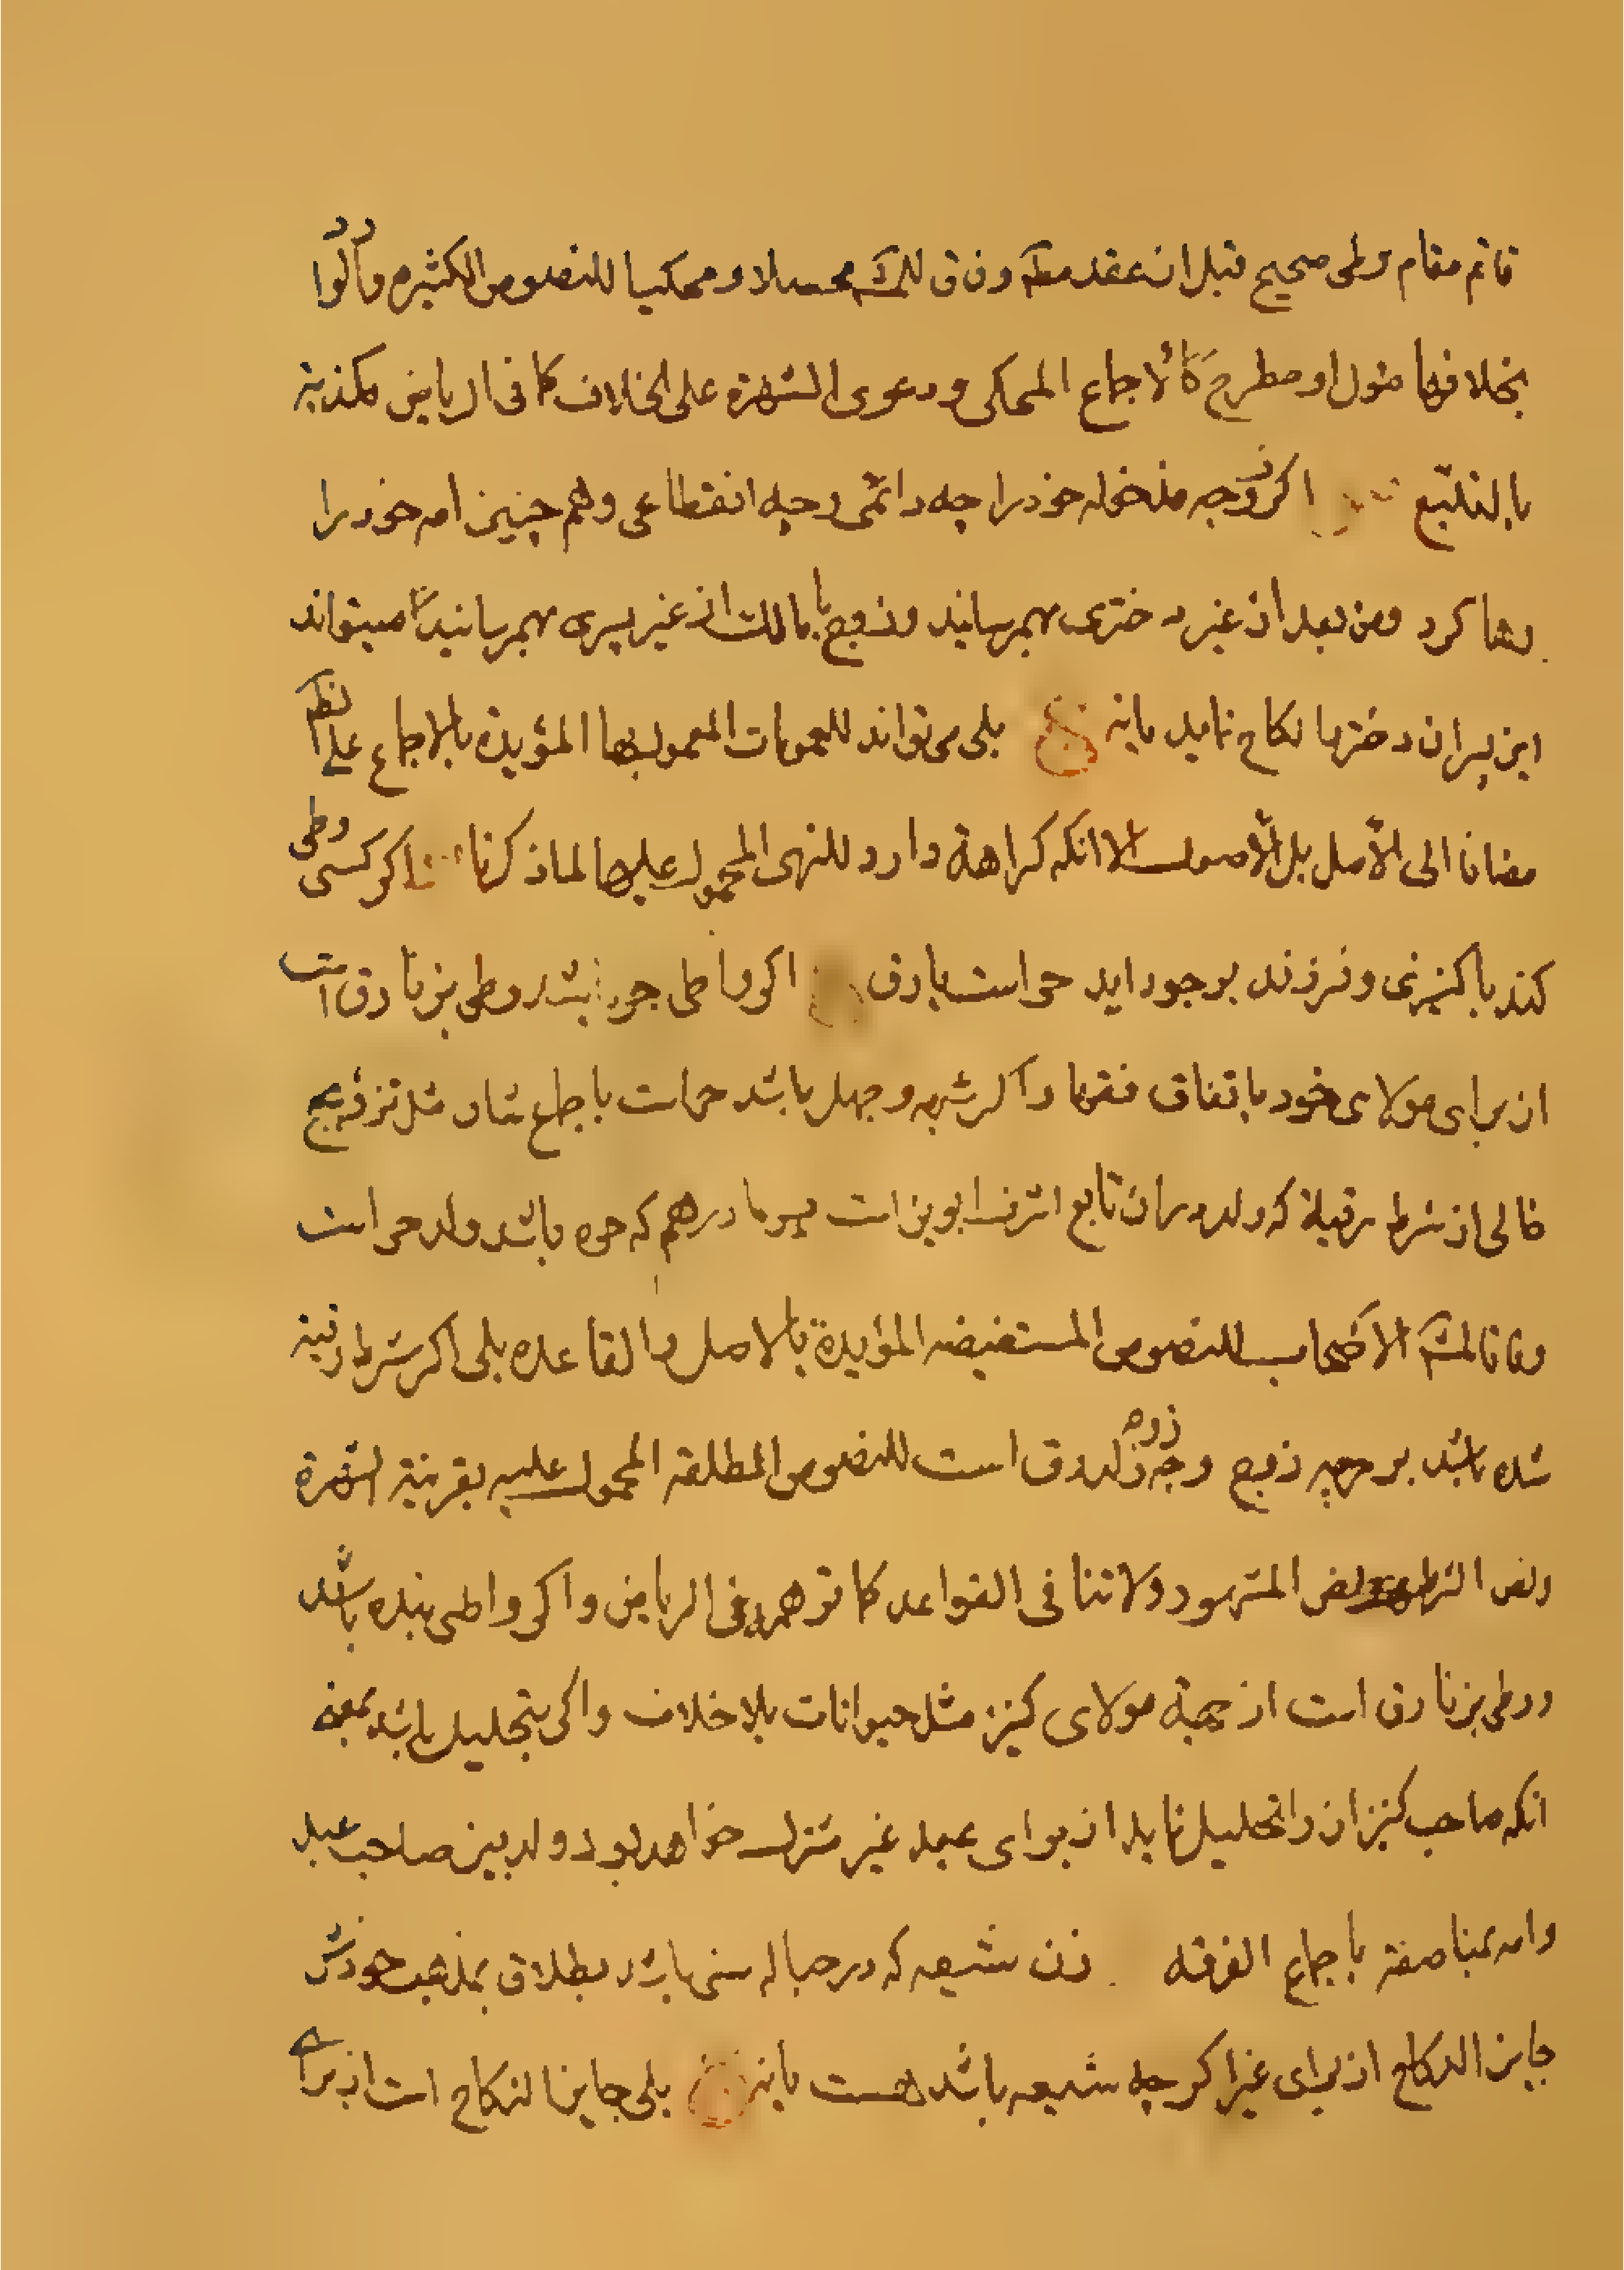 قائم مقام وطی صحیح قبل از عقد وفاق للک محصلا و محکیا للنصوص الکثیره وما ورد
بخلافها مئول او مطرح کالاجماع المحکی و دعوی الشهرة علی الخلاف کما فی الریاض مکذبة
بالتتبع اکر زوجه مدخوله خود را چه دائمی و چه انقطاعی وهم چنین امه خود را
رها کرد ومن بعد از غیر دختری بهمرسانید و زوج یا مالک از غیر پسری بهمرسانید میتواند
این پسر ان دختر را نکاح نماید یا نه ج بلی می تواند للعمومات المعمول بها المؤیدة بالاجماع علی
مضافا الی الأصل بل الأصول الا انکه کراهة دارد للنهی المحمول علیها لما ذکرنا اکر کسی وطی
کند با کنیزی و فرزند بوجود اید حر است یا رق ج اکر واطی حر باشد و وطی بزنا رق است
از برای مولای خود باتفاق فقها و اکر شبهه و جهل باشد حر است باجماع شان مثل تزویج
خالی از شرط رقیة که ولد در ان تابع اشرف ابوین است پس مادر هم که حره باشد ولد حر است
وفاقا لمشهور الاصحاب للنصوص المستفیضه المؤیدة بالاصل والقاعده بلی اکر شرط رقیة
شده باشد بر حریه زوج و زوجه ولد رق است للنصوص المطلقه المحمول علیه بقرینة الشهرة
ونص الشرط المشهود ولا تنافی القواعد کما توهم فی الریاض و اکر واطی بنده باشد
و وطی بزنا رق است از جهة مولای کنیز مثل حیوانات بلا خلاف و اکر بتحلیل باشد بمعنی
انکه صاحب کنیز ان را تحلیل نماید از برای عبد غیر مشترک خواهد بود ولد بین صاحب عبد
وامه بمناصفه باجماع الفرقه زن شیعه که در حباله سنی باشد بطلاق بمذهب خودش
جایز النکاح از برای غیر اکر چه شیعه باشد هست یا نه ج بلی جایز النکاح است از برای